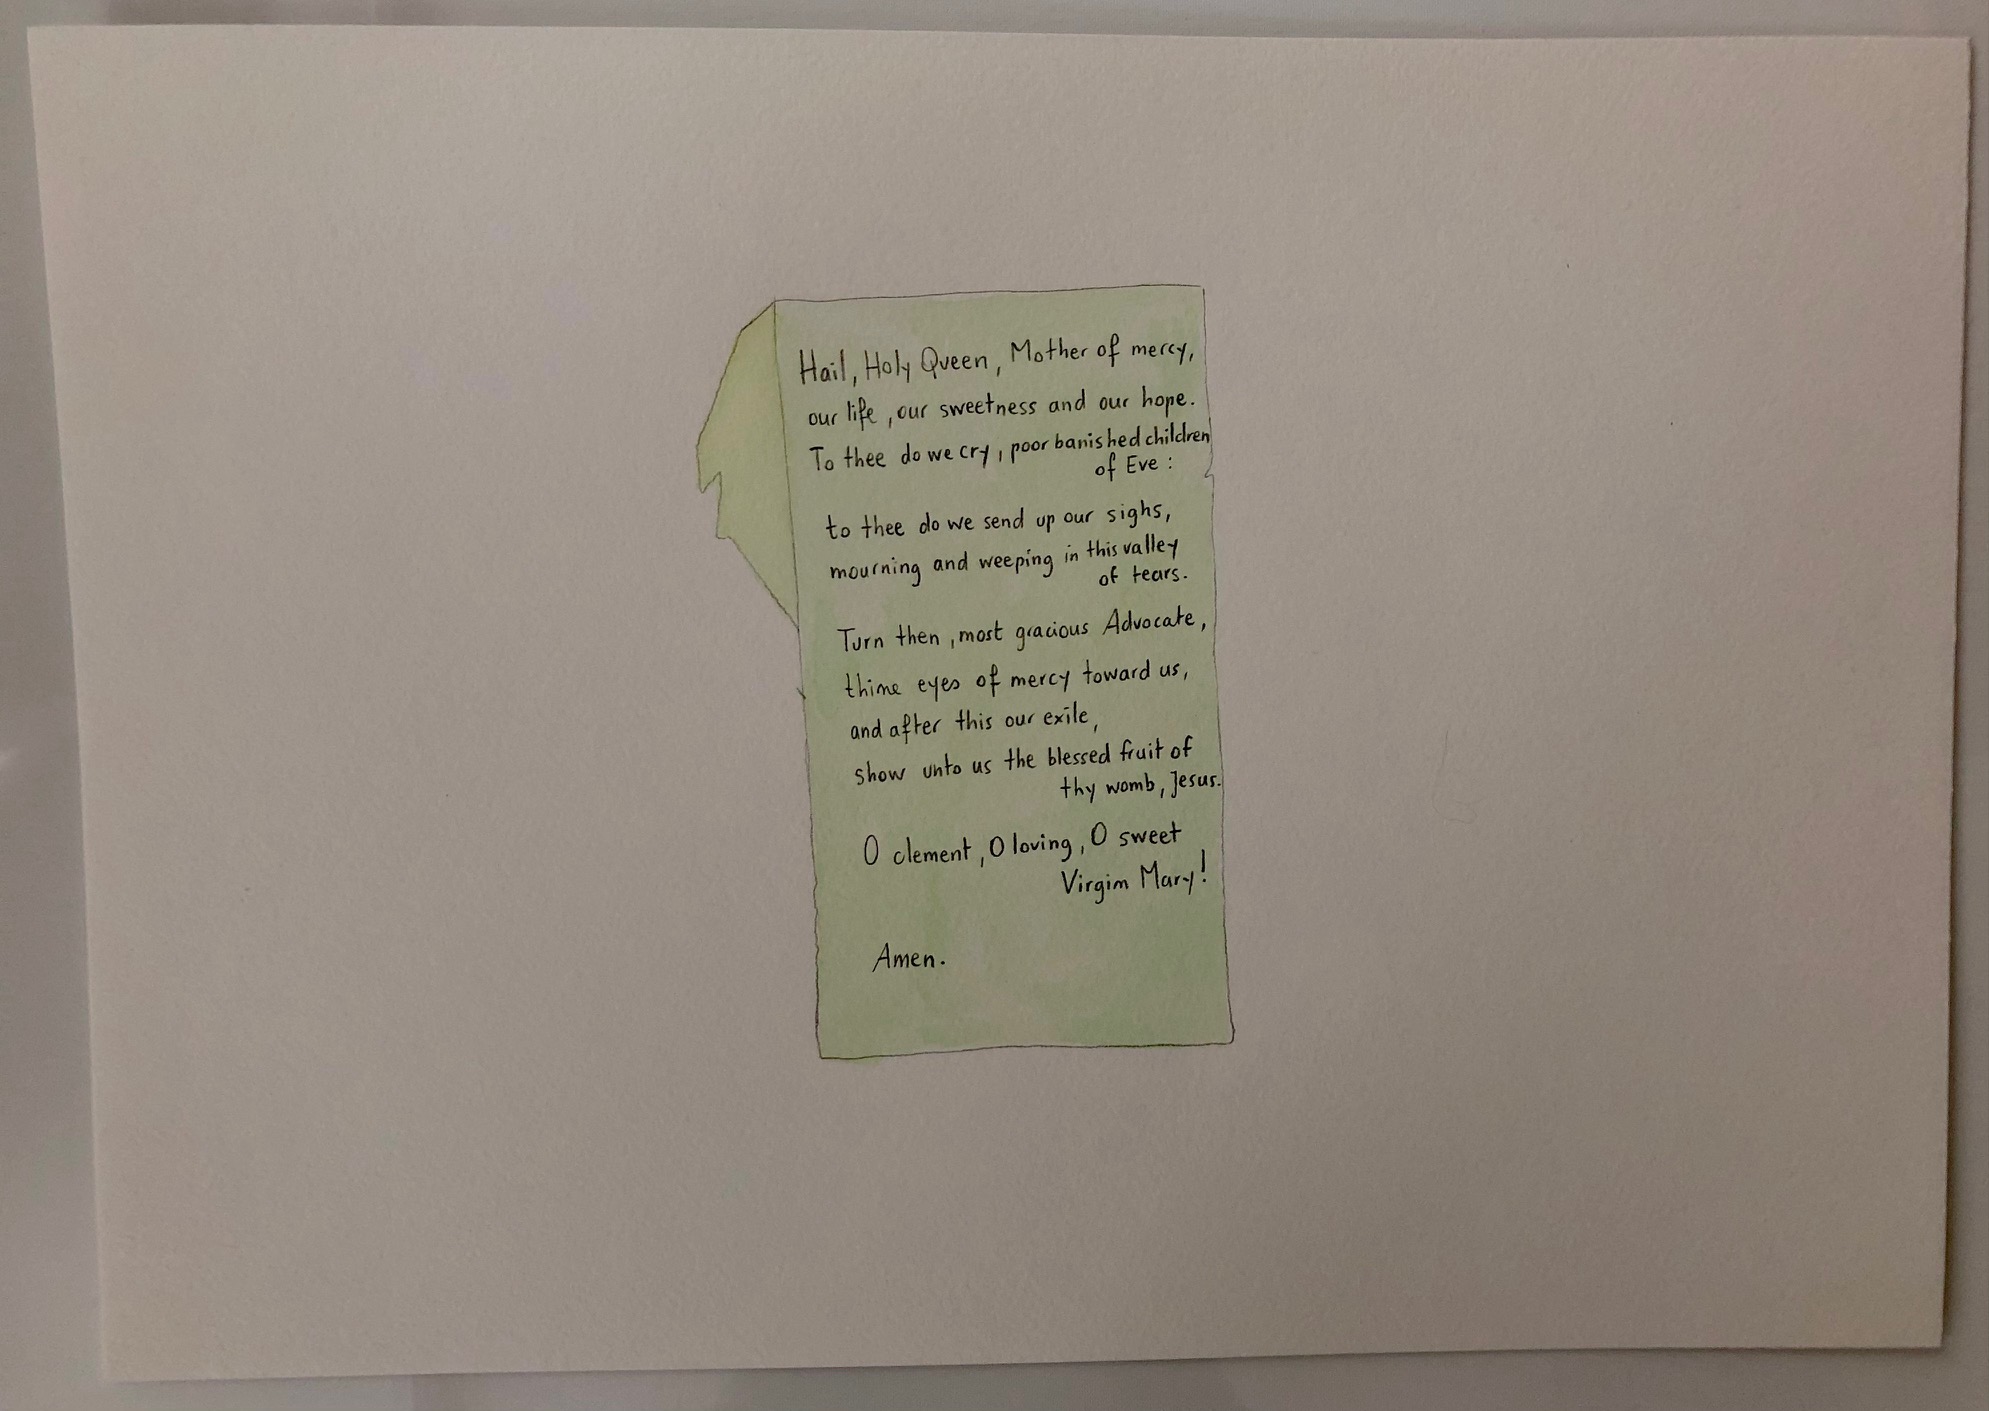 Hail, Holy Queen, Mother of mercy,
our life, our sweetness and our hope.
To thee do we cry, poor banished children
of Eve:
to thee do we send up our sighs,
mourning and weeping in this valley
of tears.
Turn then, most gracious Advocate,
thine eyes of mercy toward us,
and after this our exile,
show unto us the blessed fruit of
thy womb, Jesus.
O clement, O loving, O sweet
Virgin Mary!
Amen.